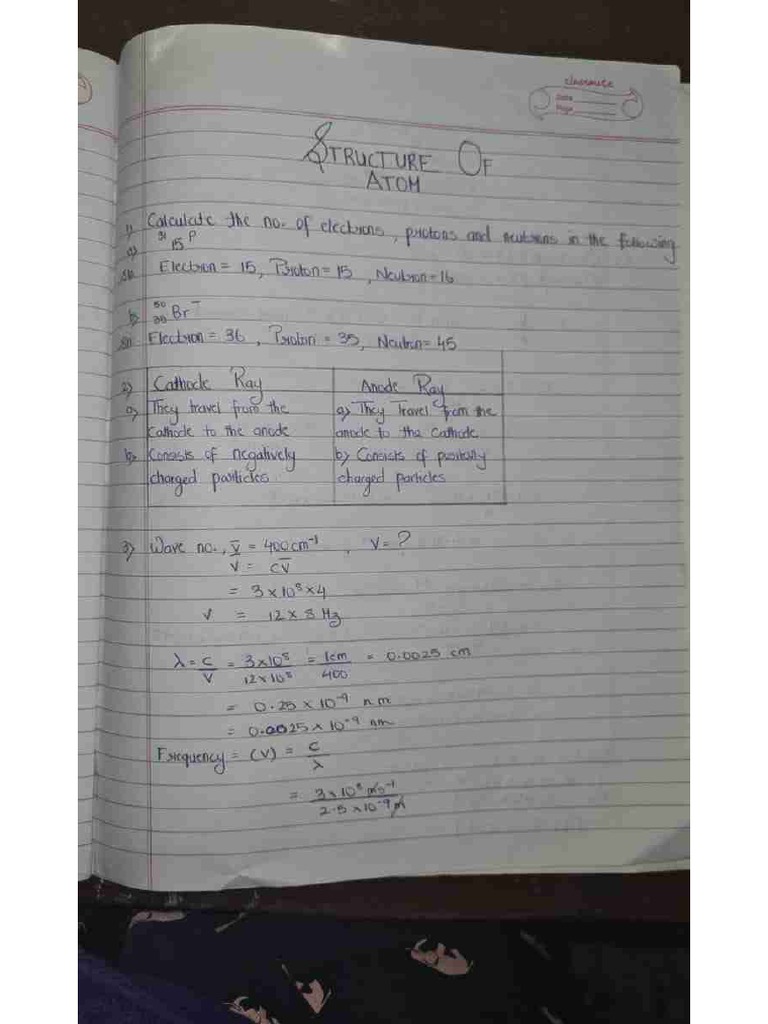 classmate
Date
Page
STRUCTURE OF
ATOM
1) Calculate the no. of electrons, protons and neutrons in the following
a) 31 15 P
Sol. Electron = 15, Proton = 15, Neutron = 16
b) 80 35 Br⁻
Sol. Electron = 36, Proton = 35, Neutron = 45
2) Cathode Ray | Anode Ray
a) They travel from the | a) They Travel from the
Cathode to the anode | anode to the Cathode
b) Consists of negatively | b) Consists of positively
charged particles | charged particles
3) Wave no., v̅ = 400cm⁻¹, v = ?
v = cv̅
= 3 × 10⁸ × 4
v = 12 × 8 Hz
λ = c/v = 3×10⁸/12×10⁸ = 1cm/400 = 0.0025 cm
= 0.25 × 10⁻⁹ nm
= 0.0025 × 10⁻⁹ nm
Frequency = (v) = c/λ
= 3 × 10⁸ ms⁻¹/2.5 × 10⁻⁹ m